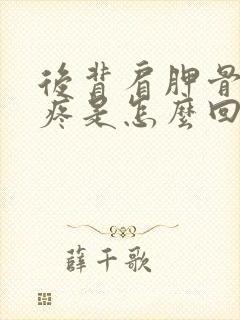 後背肩胛骨
疼是怎麼回
薛千歌